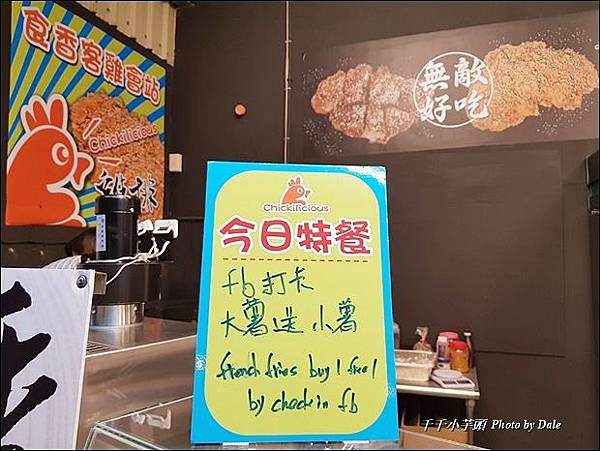 食香客雞會站
Chickilicious
無敵
好吃
Chickilicious
今日特餐
fb 打卡
大薯送小薯
french fries buy 1 free 1
by check in fb
千千小芋頭 Photo by Dale